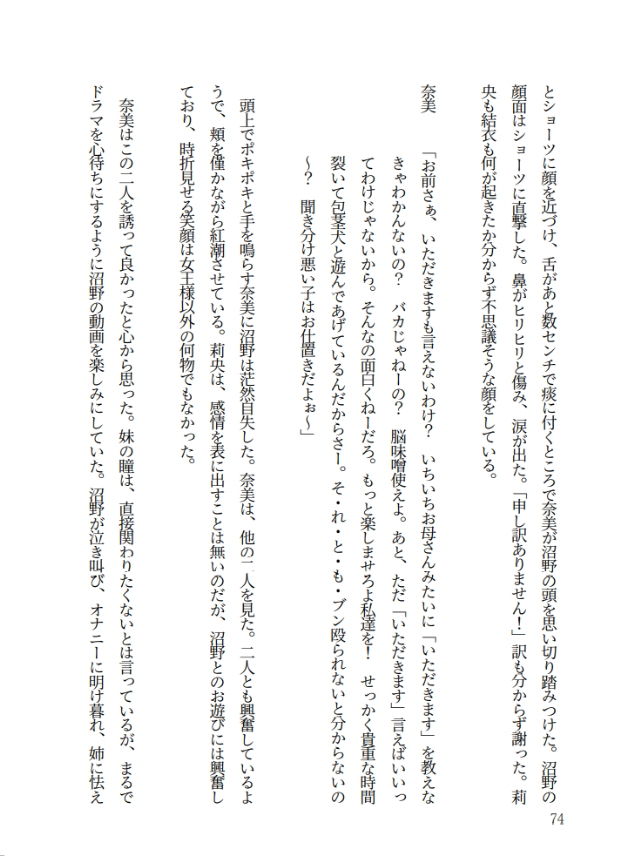 とショーツに顔を近づけ、舌があと数センチで痰に付くところで奈美が沼野の頭を思い切り踏みつけた。沼野の
顔面はショーツに直撃した。鼻がヒリヒリと傷み、涙が出た。「申し訳ありません！」訳も分からず謝った。莉
央も結衣も何が起きたか分からず不思議そうな顔をしている。
奈美　「お前さぁ、いただきますも言えないわけ？　いちいちお母さんみたいに「いただきます」を教えな
きゃわかんないの？　バカじゃねーの？　脳味噌使えよ。あと、ただ「いただきます」言えばいいっ
てわけじゃないから。そんなの面白くねーだろ。もっと楽しませろよ私達を！　せっかく貴重な時間
裂いて包茎犬と遊んであげているんだからさー。そ・れ・と・も・ブン殴られないと分からないの
〜？　聞き分け悪い子はお仕置きだよぉ〜」
頭上でポキポキと手を鳴らす奈美に沼野は茫然自失した。奈美は、他の二人を見た。二人とも興奮しているよ
うで、頬を僅かながら紅潮させている。莉央は、感情を表に出すことは無いのだが、沼野とのお遊びには興奮し
ており、時折見せる笑顔は女王様以外の何物でもなかった。
奈美はこの二人を誘って良かったと心から思った。妹の瞳は、直接関わりたくないとは言っているが、まるで
ドラマを心待ちにするように沼野の動画を楽しみにしていた。沼野が泣き叫び、オナニーに明け暮れ、姉に怯え
74